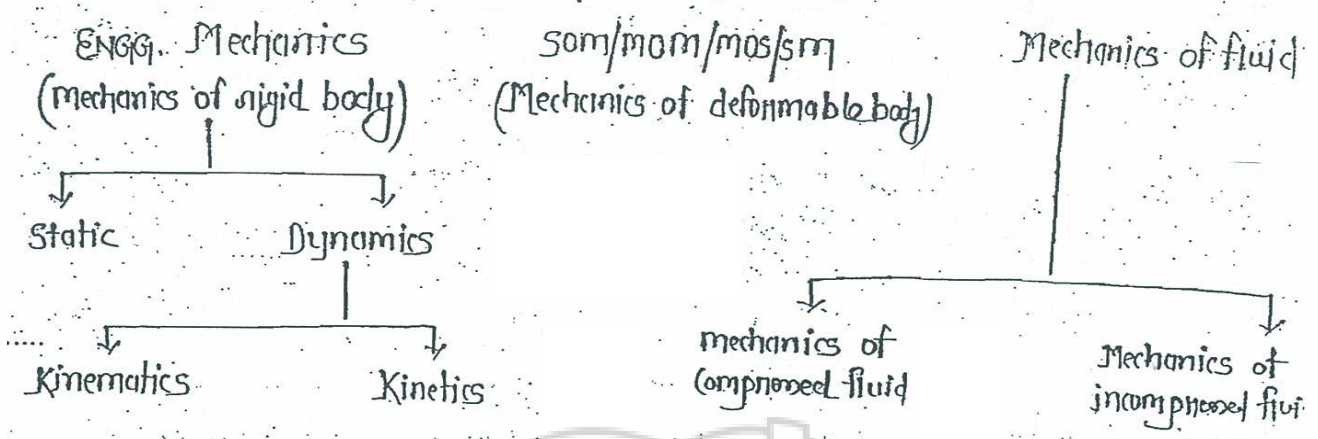 ENGG. Mechanics
(mechanics of rigid body)
Static
Dynamics
Kinematics
Kinetics
som/mom/mos/sm
(Mechanics of deformable body)
Mechanics of fluid
mechanics of
compressed fluid
Mechanics of
incompressed flui